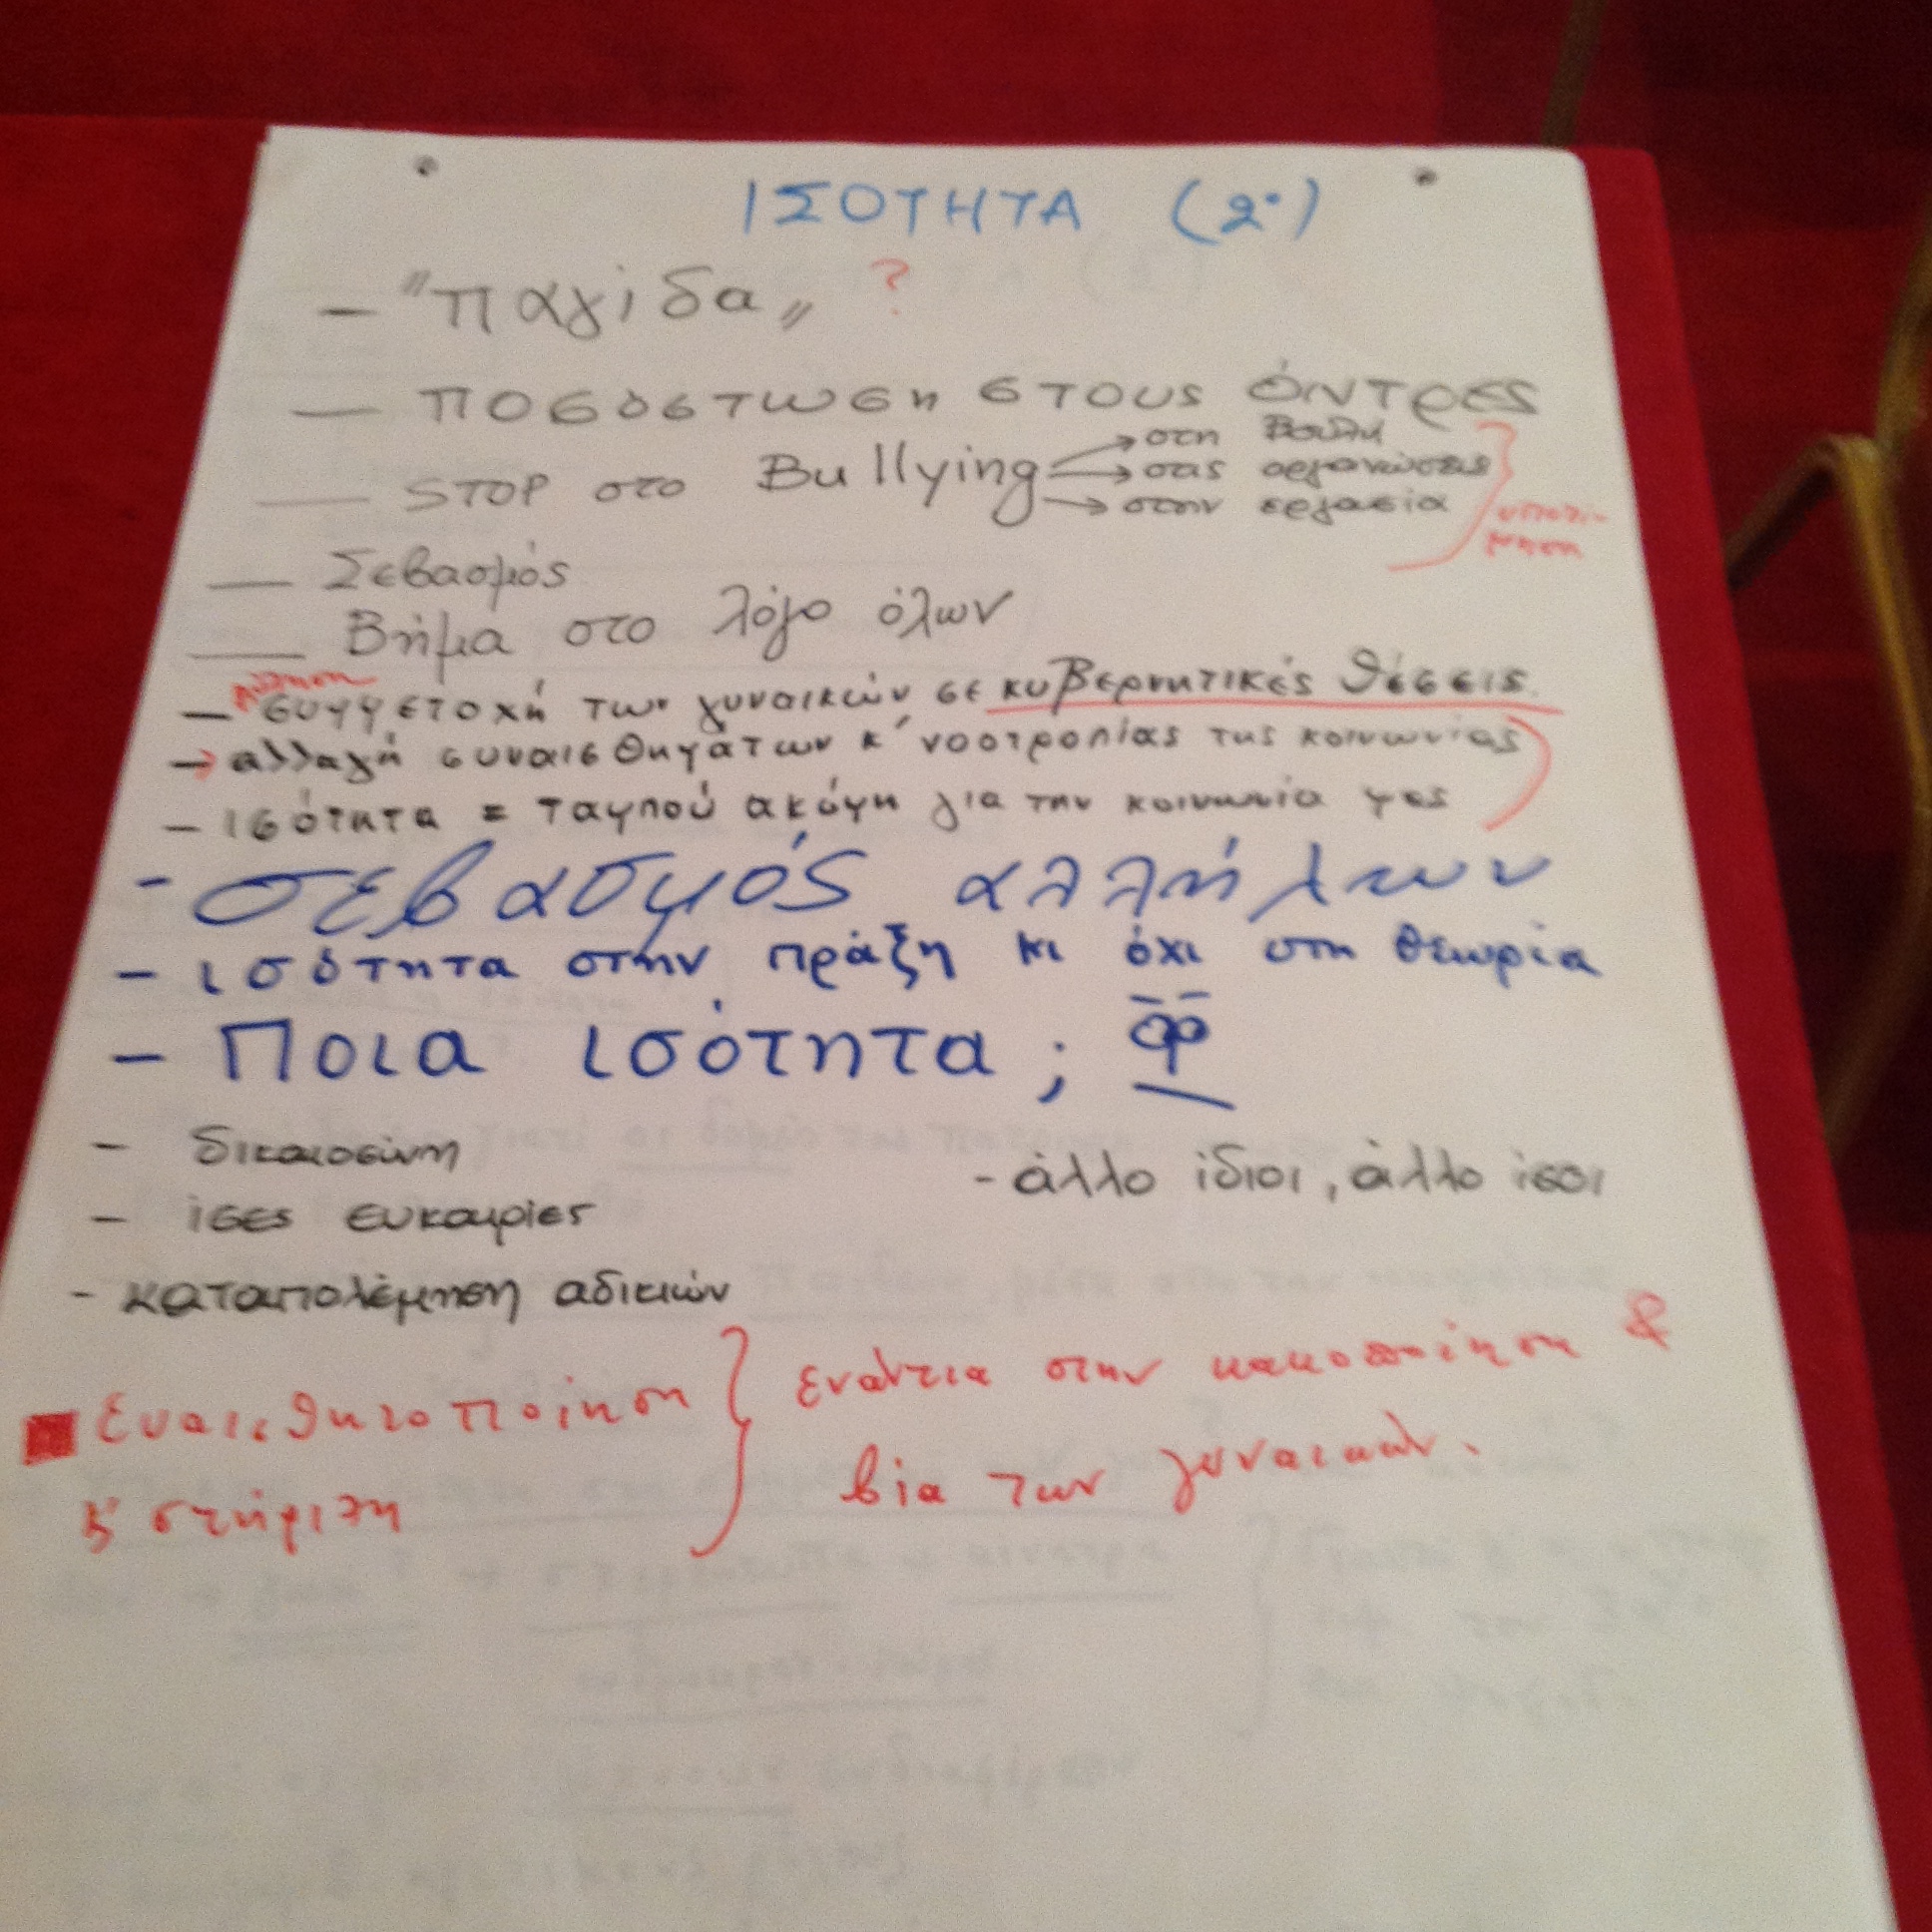 ΙΣΟΤΗΤΑ (2.)
- "παγίδα" ?
- ποσόστωση στους άντρες
- STOP στο Bullying → στη Βουλή
→ στις οργανώσεις
→ στην εργασία
υποτίμηση
- Σεβασμός
- Βήμα στο λόγο όλων
αύξηση
- συμμετοχή των γυναικών σε κυβερνητικές θέσεις
→ αλλαγή συναισθημάτων κ' νοοτροπίας της κοινωνίας
- ισότητα = ταμπού ακόμη για την κοινωνία μας
- σεβασμός αλλήλων
- ισότητα στην πράξη κι όχι στη θεωρία
- Ποια ισότητα ;
- δικαιοσύνη
- άλλο ίδιοι, άλλο ίσοι
- ίσες ευκαιρίες
- καταπολέμηση αδικιών
Ευαισθητοποίηση } ενάντια στην κακοποίηση &
κ' στήριξη } βία των γυναικών.